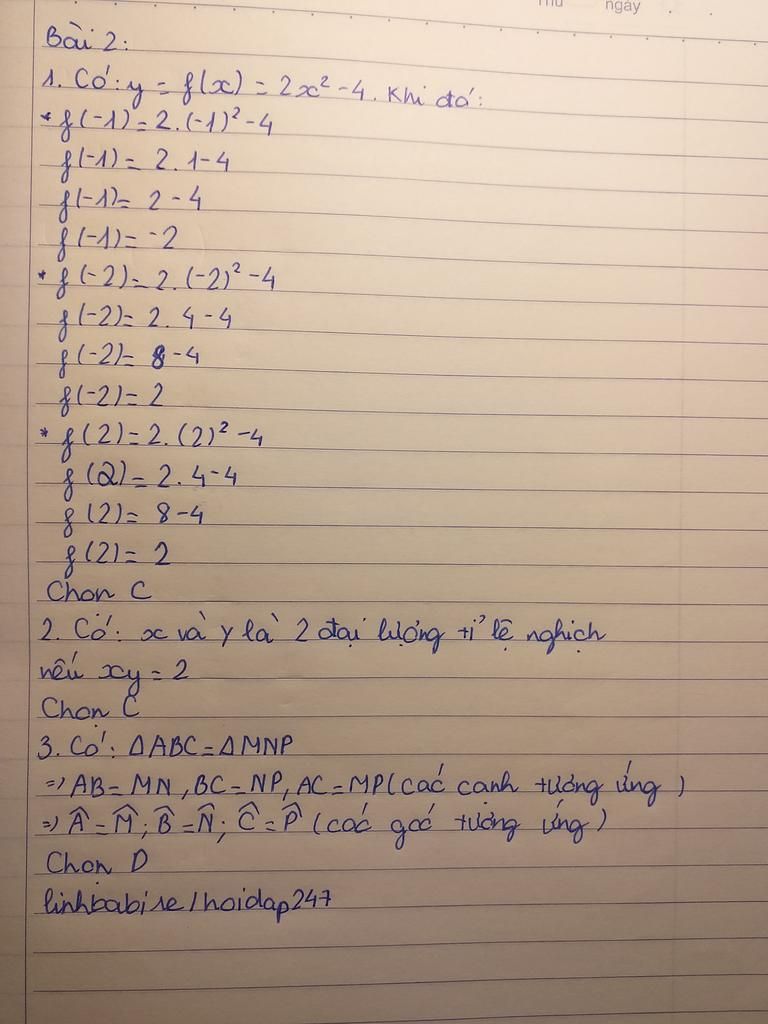 Thứ ngày
Bài 2:
1. Có: y = f(x) = 2x² - 4. Khi đó:
* f(-1) = 2.(-1)² - 4
f(-1) = 2. 1 - 4
f(-1) = 2 - 4
f(-1) = -2
* f(-2) = 2.(-2)² - 4
f(-2) = 2. 4 - 4
f(-2) = 8 - 4
f(-2) = 2
* f(2) = 2.(2)² - 4
f(2) = 2. 4 - 4
f(2) = 8 - 4
f(2) = 2
Chọn C
2. Có: x và y là 2 đại lượng tỉ lệ nghịch
nếu xy = 2
Chọn C
3. Có: ΔABC = ΔMNP
=> AB = MN, BC = NP, AC = MP (các cạnh tương ứng)
=> Â = M̂; B̂ = N̂; Ĉ = P̂ (các góc tương ứng)
Chọn D
linhbabise/hoidap247